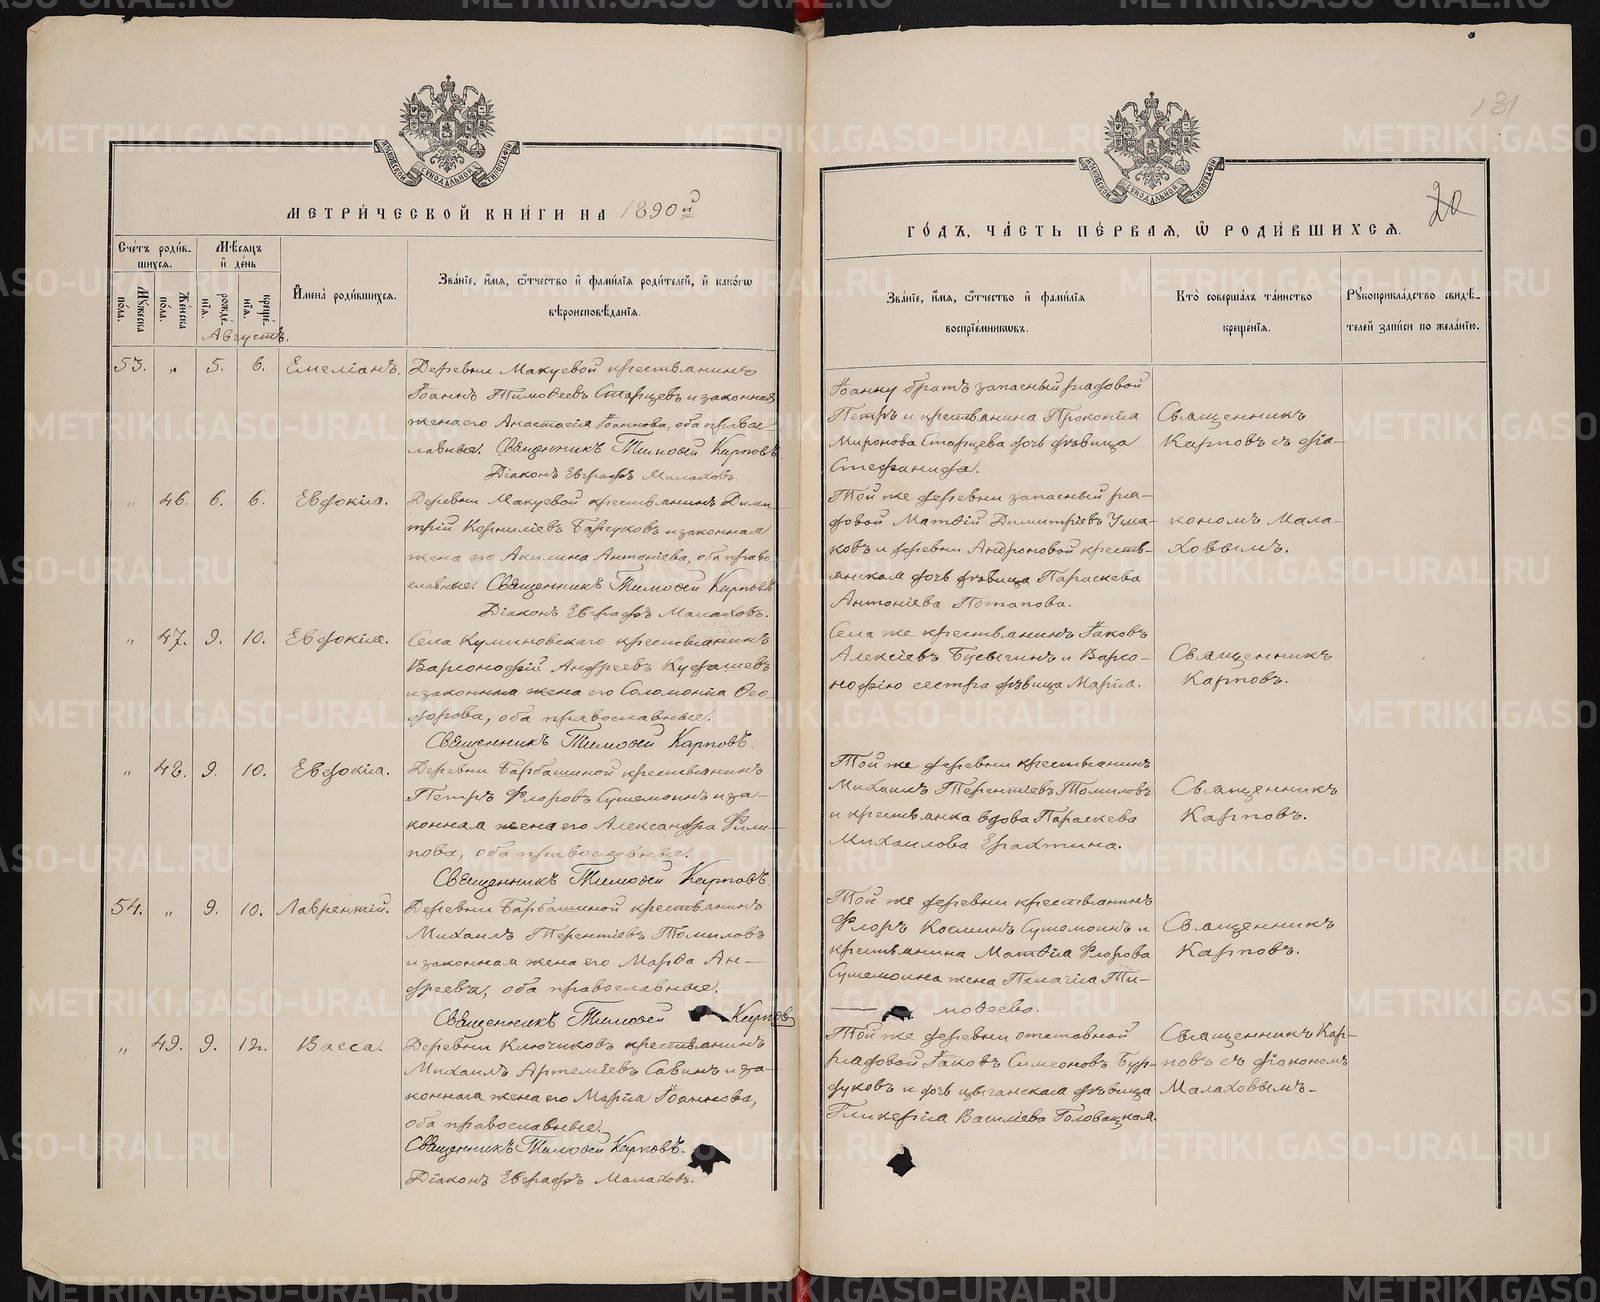 МЕТРИ́ЧЕСКОЙ КНИ́ГИ НА 1890й
Сче́тъ роди́в-
шихся.
Мѣсяцъ
и́ де́нь
Имена̀ роди́вшихся.
Зва́нїе, и́мя, ѻ҆́тчество и҆ фами́лїя роди́телей, и҆ како́гѡ
вѣроисповѣ́данїя.
Мꙋ́жеска
по́ла.
Же́нска
по́ла.
рожде́-
нїя.
креще́-
нїя.
Августъ.
53. „ 5. 6. Емелїанъ. Деревни Макуевой крестьянинъ
Іоаннъ Тимоѳеевъ Старцевъ и законная
жена его Анастасія Іоаннова, оба право-
славные. Священникъ Тимоѳей Карповъ
Діаконъ Евграфъ Малаховъ.
„ 46. 6. 6. Евдокія. Деревни Макуевой крестьянинъ Дими-
трій Корниліевъ и законная
жена его Акилина Антоніева, оба право-
славные. Священникъ Тимоѳей Карповъ
Діаконъ Евграфъ Малаховъ.
„ 47. 9. 10. Евдокія. Села Куминовскаго крестьянинъ
Варсонофій Андреевъ Кудашевъ
и законная жена его Соломонія Ѳео-
дорова, оба православные.
Священникъ Тимоѳей Карповъ.
„ 48. 9. 10. Евдокія. Деревни Барбашиной крестьянинъ
Петръ Флоровъ и за-
конная жена его Александра Фили-
пова, оба православные.
Священникъ Тимоѳей Карповъ.
54. „ 9. 10. Лаврентій. Деревни Барбашиной крестьянинъ
Михаилъ Терентіевъ Томиловъ
и законная жена его Марѳа Ан-
дреева, оба православные.
Священникъ Тимоѳей Карповъ
„ 49. 9. 12. Васса. Деревни Ключиковъ крестьянинъ
Михаилъ Артеміевъ Савинъ и за-
конная жена его Марія Іоаннова,
оба православные.
Священникъ Тимоѳей Карповъ.
Діаконъ Евграфъ Малаховъ.
131
20
ГО́ДЪ, ЧА́СТЬ ПЕ́РВАЯ, Ѽ РОДИ́ВШИХСЯ.
Зва́нїе, и́мя, ѻ҆́тчество и҆ фами́лїя
воспрїе́мникѡвъ.
Кто̀ соверша́лъ та́инство
креще́нїя.
Рꙋкоприкла́дство свидѣ́-
телей за́писи по жела́нїю.
Іоанну братъ запасный рядовой
Петръ и крестьянина Прокопія
Миронова Старцева дочь дѣвица
Стефанида.
Священникъ
Карповъ съ діа-
Той же деревни запасный ря-
довой Матѳій Димитріевъ Уша-
ковъ и деревни Андроновой кресть-
янская дочь дѣвица Параскева
Антоніева Потапова.
кономъ Мала-
ховымъ.
Села же крестьянинъ Іаковъ
Алексіевъ и Варсо-
нофію сестра дѣвица Марія.
Священникъ
Карповъ.
Той же деревни крестьянинъ
Михаилъ Терентіевъ Томиловъ
и крестьянка вдова Параскева
Михаилова Ерахтина.
Священникъ
Карповъ.
Той же деревни крестьянинъ
Флоръ Косминъ и
крестьянина Матѳія Флорова
жена Пелагія Ти-
моѳеева.
Священникъ
Карповъ.
Той же деревни отставной
рядовой Іаковъ Симеоновъ Бур-
дуковъ и дочь дѣвица
Гликерія Василіева Головацкая.
Священникъ Кар-
повъ съ діакономъ
Малаховымъ.